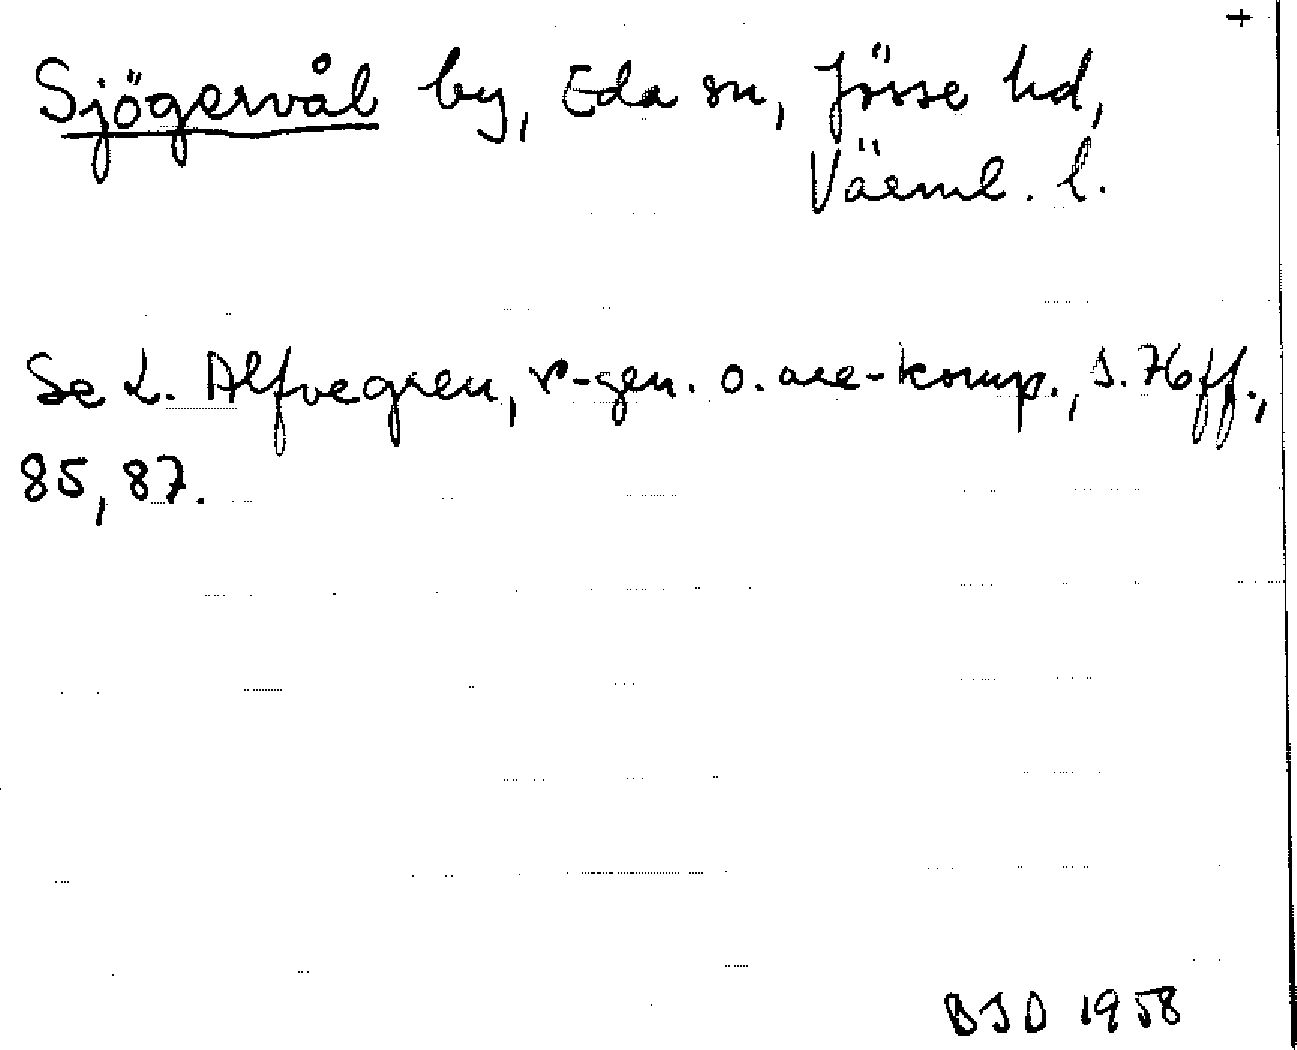 +
Sjögervål by, Eda sn, Jösse hd,
Värml. l.
Se L. Alfvegren, r-gen. o. are-komp., s. 76 ff.,
85, 87.
BJD 1958